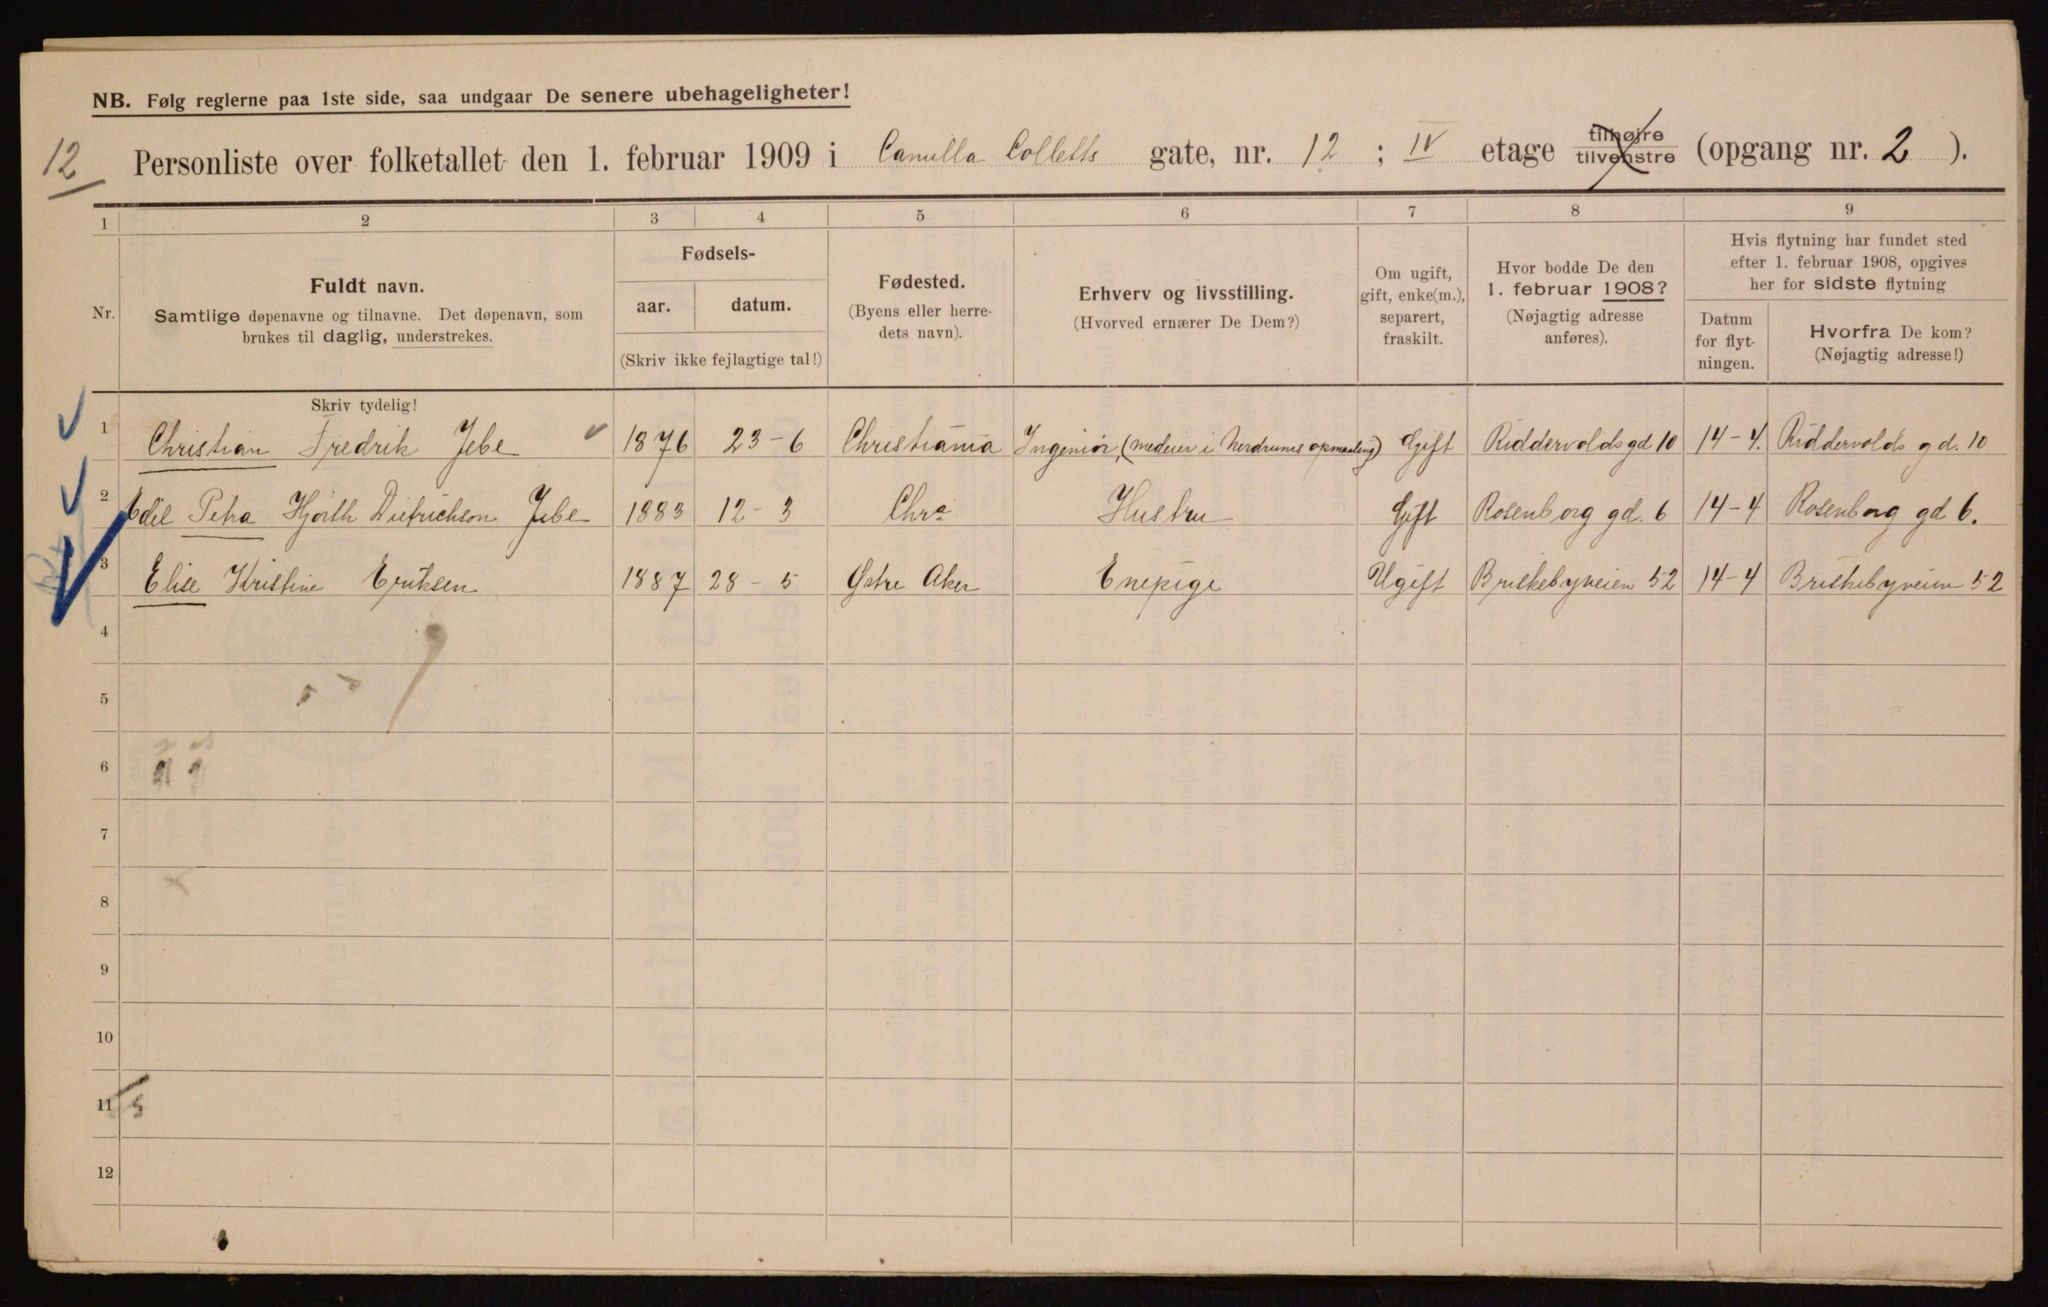 NB. Følg reglerne paa 1ste side, saa undgaar De senere ubehageligheter!
12
Personliste over folketallet den 1. februar 1909 i Camilla Colletts gate, nr. 12 ; IV etage tilhøjre tilvenstre (opgang nr. 2 ).
1 2 3 4 5 6 7 8 9
Nr.
Fuldt navn.
Samtlige døpenavne og tilnavne. Det døpenavn, som
brukes til daglig, understrekes.
Fødsels-
aar. datum.
(Skriv ikke fejlagtige tal!)
Fødested.
(Byens eller herre-
dets navn).
Erhverv og livsstilling.
(Hvorved ernærer De Dem?)
Om ugift,
gift, enke(m.),
separert,
fraskilt.
Hvor bodde De den
1. februar 1908?
(Nøjagtig adresse
anføres).
Hvis flytning har fundet sted
efter 1. februar 1908, opgives
her for sidste flytning
Datum
for flyt-
ningen.
Hvorfra De kom?
(Nøjagtig adresse!)
Skriv tydelig!
1 Christian Fredrik Jebe 1876 23-6 Christiania Ingeniør, (medeier i Nerdrums opmaaling) Gift Riddervolds gd 10 14-4. Riddervolds gd. 10
2 Edle Petra Hjorth Dietrichson Jebe 1883 12-3 Chra Hustru Gift Rosenborg gd. 6 14-4 Rosenborg gd 6.
3 Elise Kristine Eriksen 1887 28-5 Østre Aker Enepige Ugift Briskebyveien 52 14-4 Briskebyveien 52
4
5
6
7
8
9
10
11
12